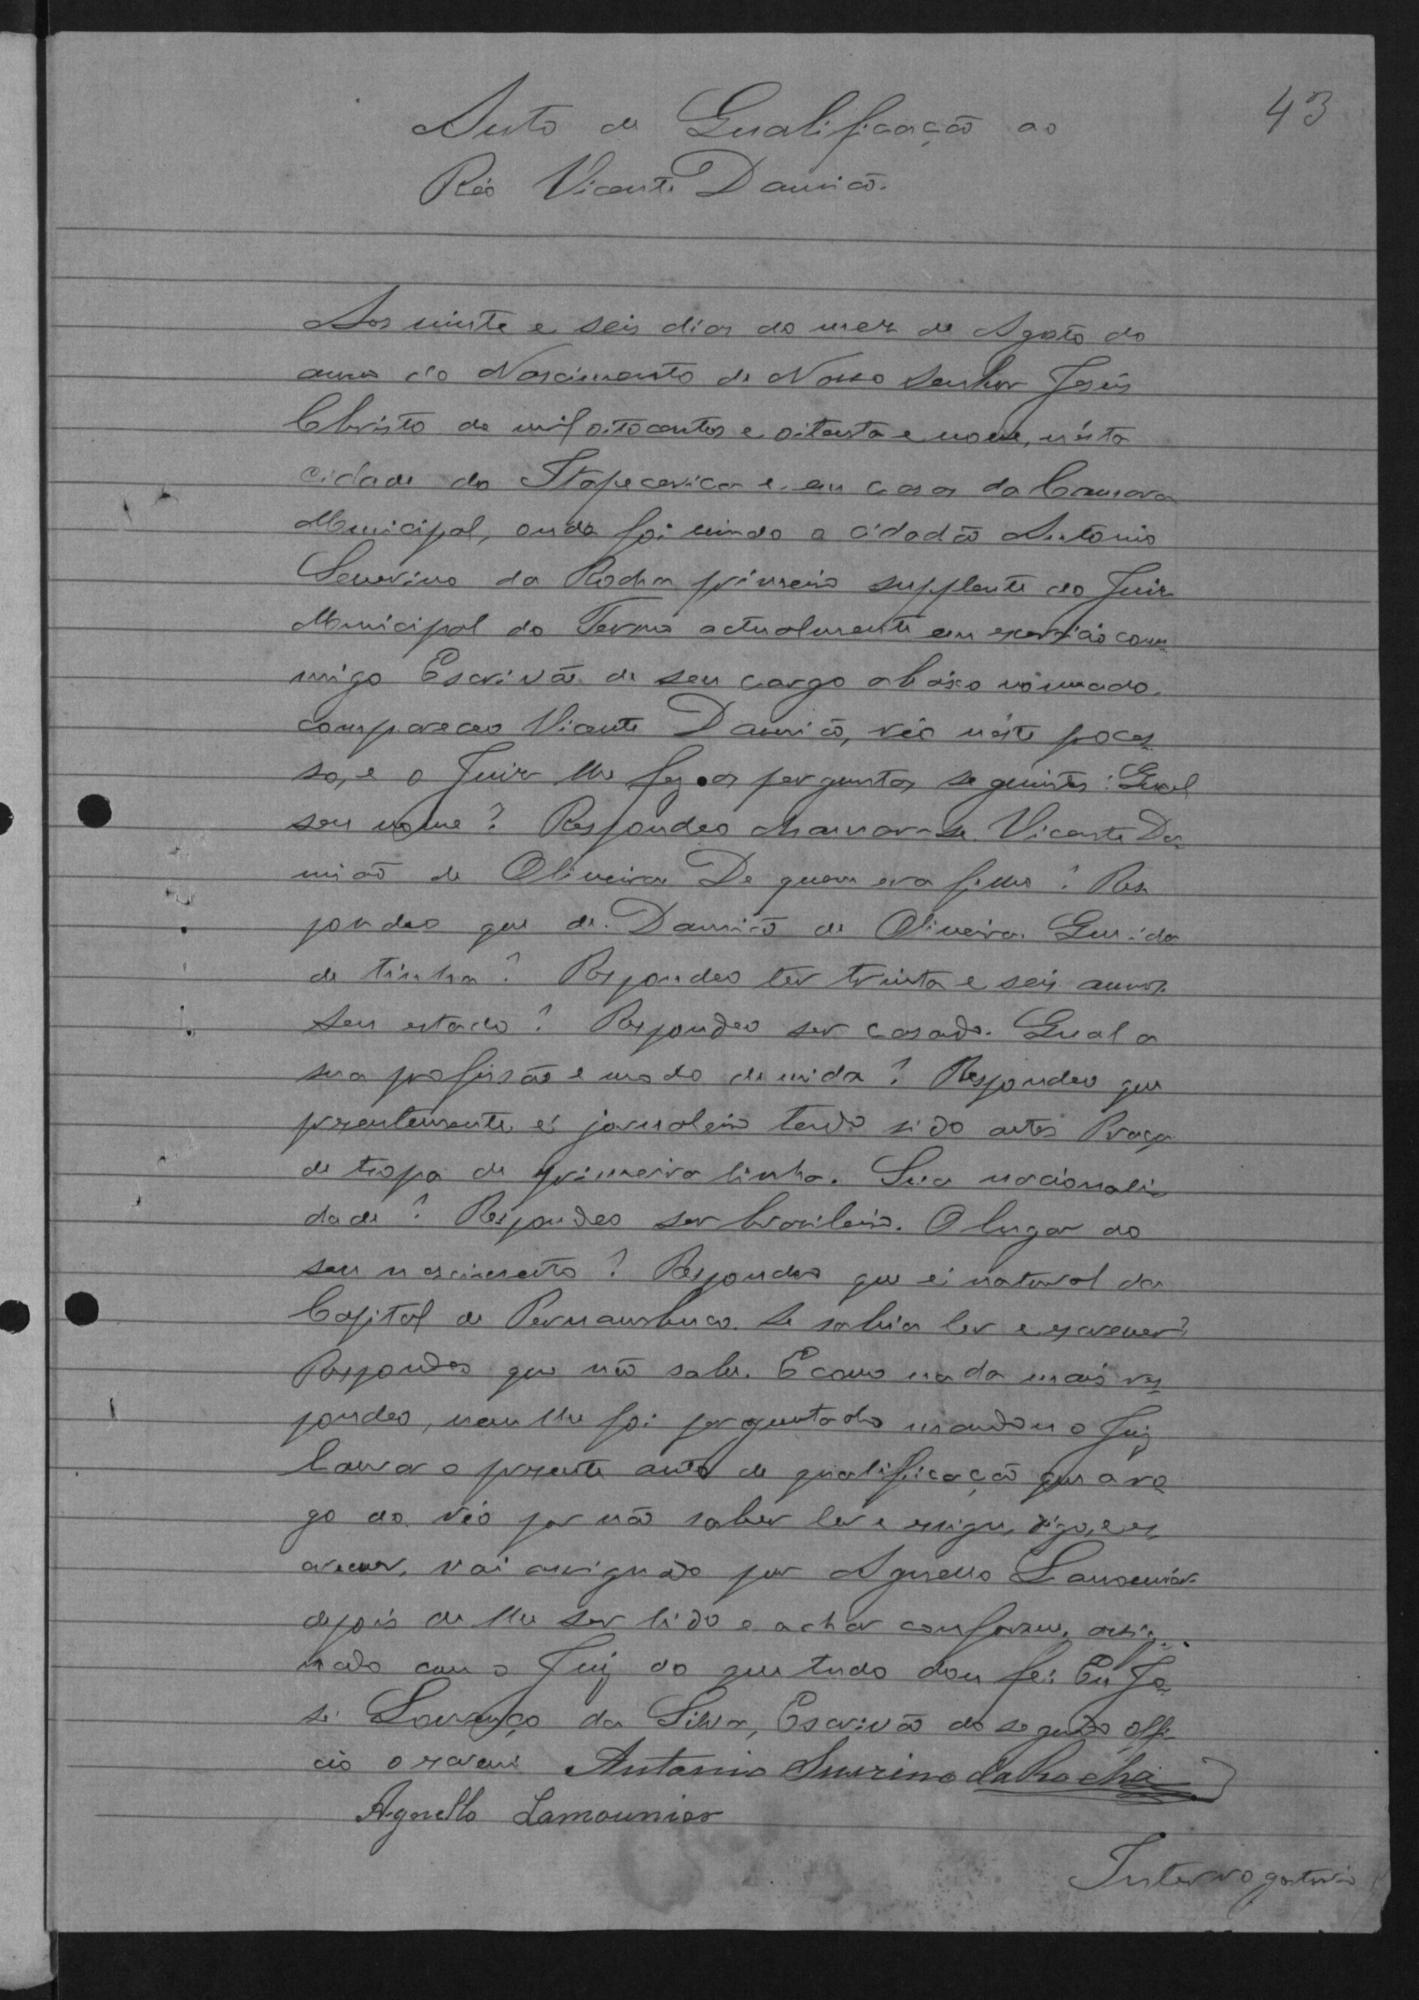 43
Auto de Qualificação ao
Réo Vicente Damião.
Aos vinte e seis dias do mez de Agosto do
anno do Nascimento de Nosso Senhor Jesús
Christo de mil oitocentos e oitenta e nove, nésta
cidade do Itapecerica e em casa da Camara
Municipal, onde foi vindo o cidadão Antonio
Severino da Rocha primeiro supplente do Juiz
Municipal do Termo actualmente em exercicio com-
migo Escrivão de seu cargo abaixo nomeado.
compareceo Vicente Damião, réo néste proces-
so, e o Juiz lhe fez as perguntas seguintes: Qual
seu nome? Respondeo chamar-se Vicente Da-
mião de Oliveira De quem era filho? Res-
pondeo que de Damião de Oliveira. Que ida-
de tinha? Respondeo ter trinta e seis annos.
Seu estado? Respondeo ser casado. Qual a
sua profissão e modo de vida? Respondeo que
prezentemente é jornaleiro tendo sido antes Praça
de tropa de primeira linha. Sua nacionali-
dade? Respondeo ser brazileiro. O lugar do
seu nascimento? Respondeo que é natural da
Capital de Pernambuco. Se sabia ler e escrever?
Respondeo que não sabe. E como nada mais res-
pondeo, nem lhe foi perguntado mandou o Juiz
lavrar o prezente auto de qualificação que a ro-
go do réo por não saber ler e assignar, digo, e es-
crever, vai assignado por Agnello Lamounier
depois de lhe ser lido e achar conforme, assig-
nado com o Juiz do que tudo dou fé: Eu Jo-
sé Lourenço da Silva, Escrivão do segundo offi-
cio o escrevi Antonio Severino da Rocha
Agnello Lamounier
Interrogatorio